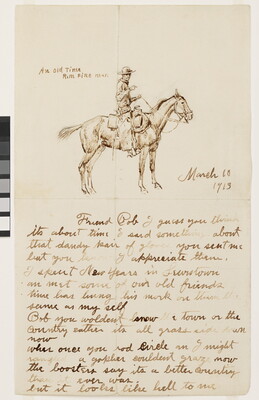 An Old Time
Rim Fire man
March 10
1913
Friend Bob I guess you think
its about time I said something about
that dandy pair of gloves you sent me
but you know I appreciate them.
I spent New Years in Lewistown
an met some of our old friends
time has hung his mark on them the
same as my self
Bob you woldent know town or the
country eather its all grass side down
now
wher once you rod Circle an I night
a gopher couldent graze now
the boosters say its a better country
than it ever was
but it looks like hell to me